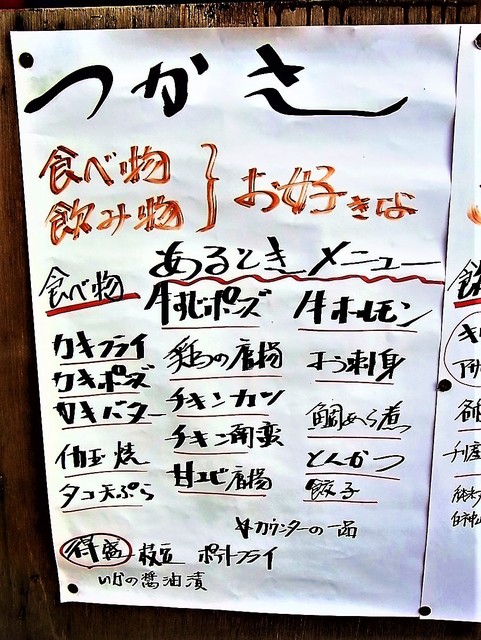 つかさ
食べ物
飲み物
お好きな
あるときメニュー
食べ物
カキフライ
カキポズ
カキバター
タコ天ぷら
牛すじポーズ
鶏の唐揚
チキンカツ
チキン南蛮
甘エビ唐揚
牛ホルモン
お刺身
鯛あら煮
とんかつ
餃子
カウンターの一品
得盛
枝豆
ポテトフライ
いかの醤油漬